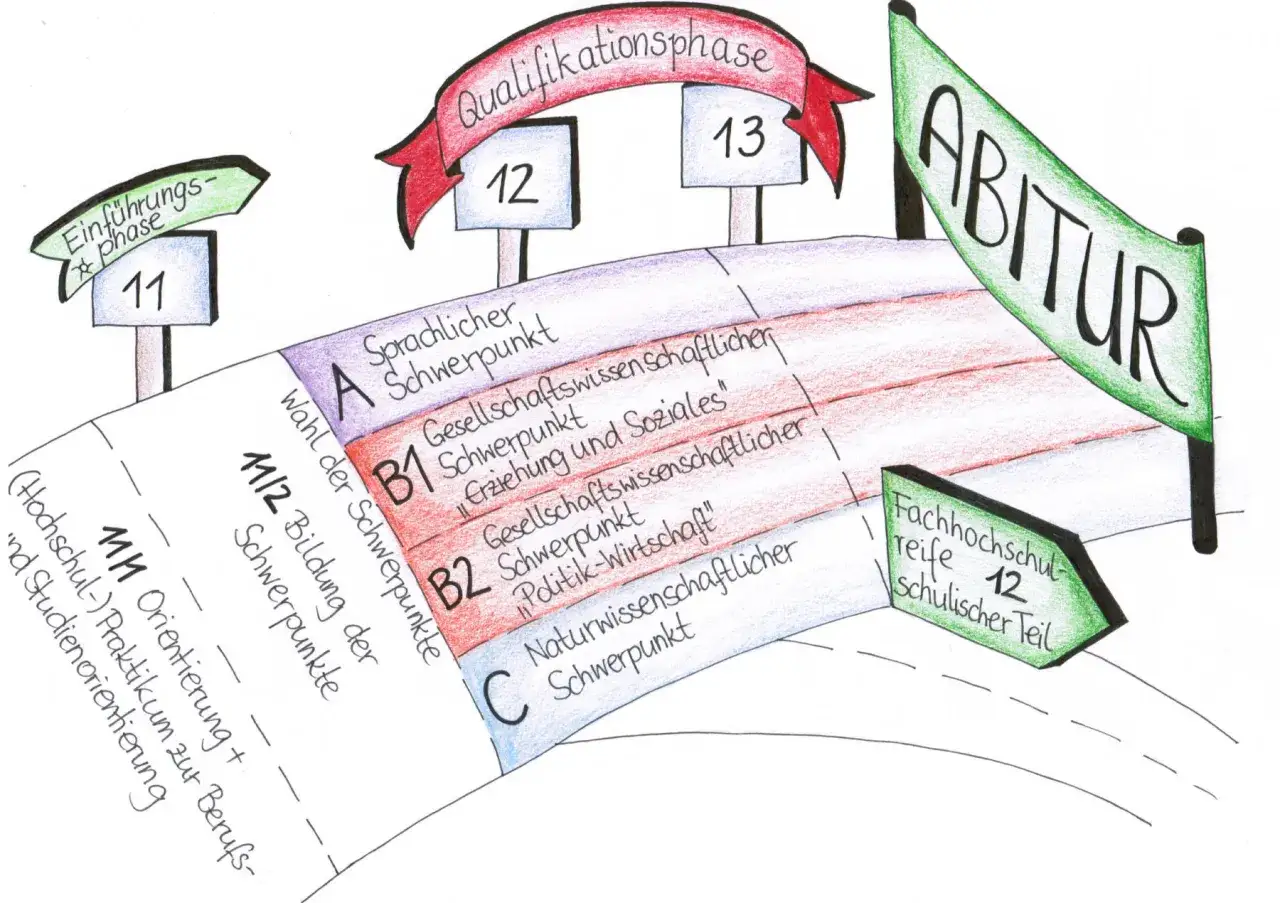 Qualifikationsphase
12
13
ABITUR
Einführungs-
phase
11
A Sprachlicher
Schwerpunkt
B1 Gesellschaftswissenschaftlicher
Schwerpunkt
„Erziehung und Soziales"
B2 Gesellschaftswissenschaftlicher
Schwerpunkt
„Politik-Wirtschaft"
C Naturwissenschaftlicher
Schwerpunkt
Wahl der Schwerpunkte
11/2 Bildung der
Schwerpunkte
11/1 Orientierung +
(Hochschul-) Praktikum zur Berufs-
und Studienorientierung
Fachhochschul-
reife 12
schulischer Teil